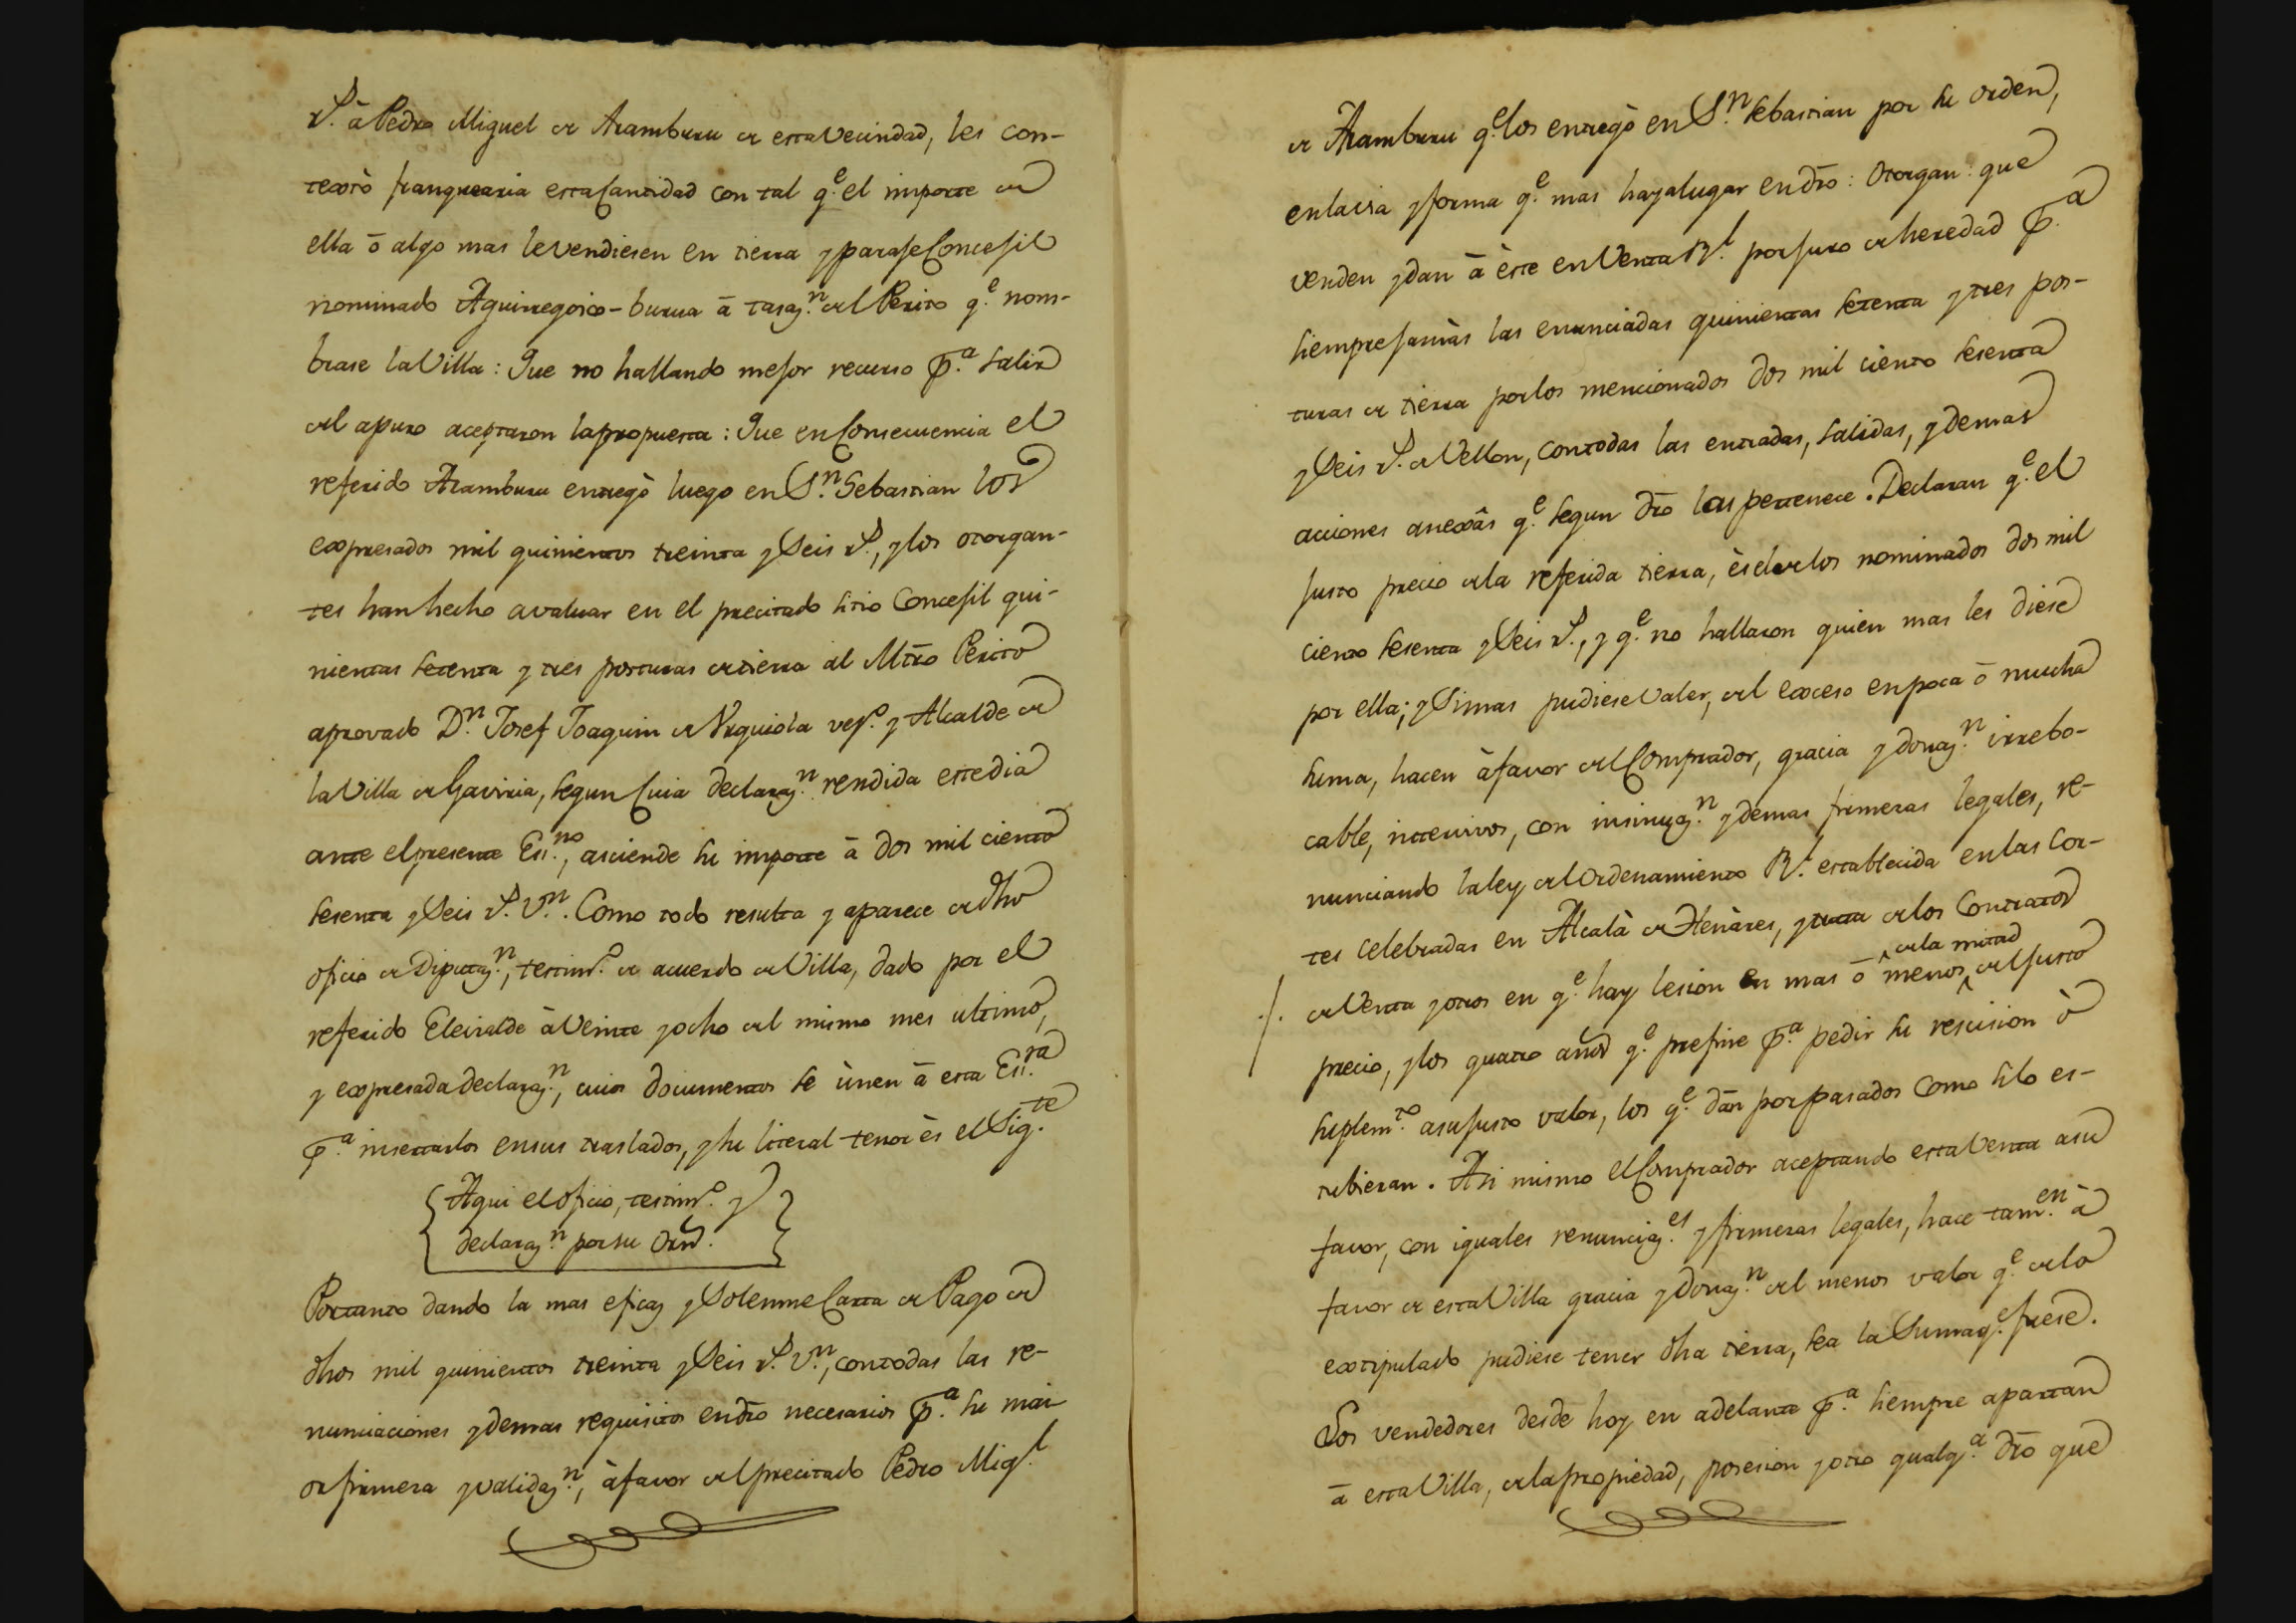 rs. à Pedro Miguel de Aramburu de esta vecindad, les con-
textò franquearia esta Cantidad con tal q.e el importe de
ella ò algo mas le vendiesen en tierra y paraje Concejil
nominado Aguirregoico-burua à tasaz.n del Perito q.e nom-
brase la Villa: Que no hallando mejor recurso p.a salir
del apuro aceptaron la propuesta: Que en Consecuencia el
referido Aramburu entregò luego en S.n Sebastian los
expresados mil quinientos treinta y Seis rs., y los otorgan-
tes han hecho avaluar en el precitado sitio Concejil qui-
nientas setenta y tres posturas de tierra al Mtro Perito
aprovado D.n Josef Joaquin de Urquiola vez.o y Alcalde de
la Villa de Gaviria, segun Cuia declaraz.n rendida este dia
ante el presente Ess.no, asciende su importe à dos mil ciento
sesenta y Seis rs. V.n. Como todo resulta y aparece de dho
oficio de Diputaz.n, testim.o de acuerdo de Villa, dado por el
referido Eleizalde à Veinte y ocho del mismo mes ultimo,
y expresada declaraz.n, cuios documentos se ùnen à esta Ess.ra
p.a insertarlos en sus traslados, y su literal tenor ès el Sig.te
Aqui el oficio, testim.o y
declaraz.n por su Orn.
Portanto dando la mas eficaz y Solemne Carta de Pago de
dhos mil quinientos treinta y Seis rs. V.n, con todas las re-
nunciaciones y demas requisitos en dro necesarios p.a su mai-
or firmeza y validaz.n, à favor del precitado Pedro Mig.l
de Aramburu q.e los entregò en S.n Sebastian por su orden,
en la via y forma q.e mas haya lugar en dro: Otorgan: que
venden y dan à èste en Venta R.l por juro de heredad p.a
siempre jamàs las enunciadas quinientas setenta y tres pos-
turas de tierra por los mencionados dos mil ciento sesenta
y Seis rs. de Vellon, con todas las entradas, salidas, y demas
acciones anexâs q.e segun dro las pertenece. Declaran q.e el
justo precio de la referida tierra, ès el de los nominados dos mil
ciento sesenta y Seis rs., y q.e no hallaron quien mas les diese
por ella; y Si mas pudiese valer, del exceso en poca ò mucha
suma, hacen à favor del Comprador, gracia y donaz.n irrebo-
cable, intervivos, con insinuaz.n y demas firmezas legales, re-
nunciando la ley del Ordenamiento R.l establecida en las Cor-
tes celebradas en Alcalà de Henàres, y trata de los Contratos
de Venta y otros en q.e hay lesion en mas ò menos de la mitad del justo
precio, y los quatro años q.e prefine p.a pedir su rescision ò
suplem.to a su justo valor, los q.e dàn por pasados como si lo es-
tubieran. Asi mismo el Comprador aceptando esta Venta a su
favor, con iguales renunciaz.es y firmezas legales, hace tam.en à
favor de esta Villa gracia y donaz.n del menos valor q.e de lo
extipulado pudiese tener dha tierra, sea la Suma q.e fuese.
Los vendedores desde hoy en adelante p.a siempre apartan
à esta Villa, de la propiedad, posesion y otro qualq.a dro que